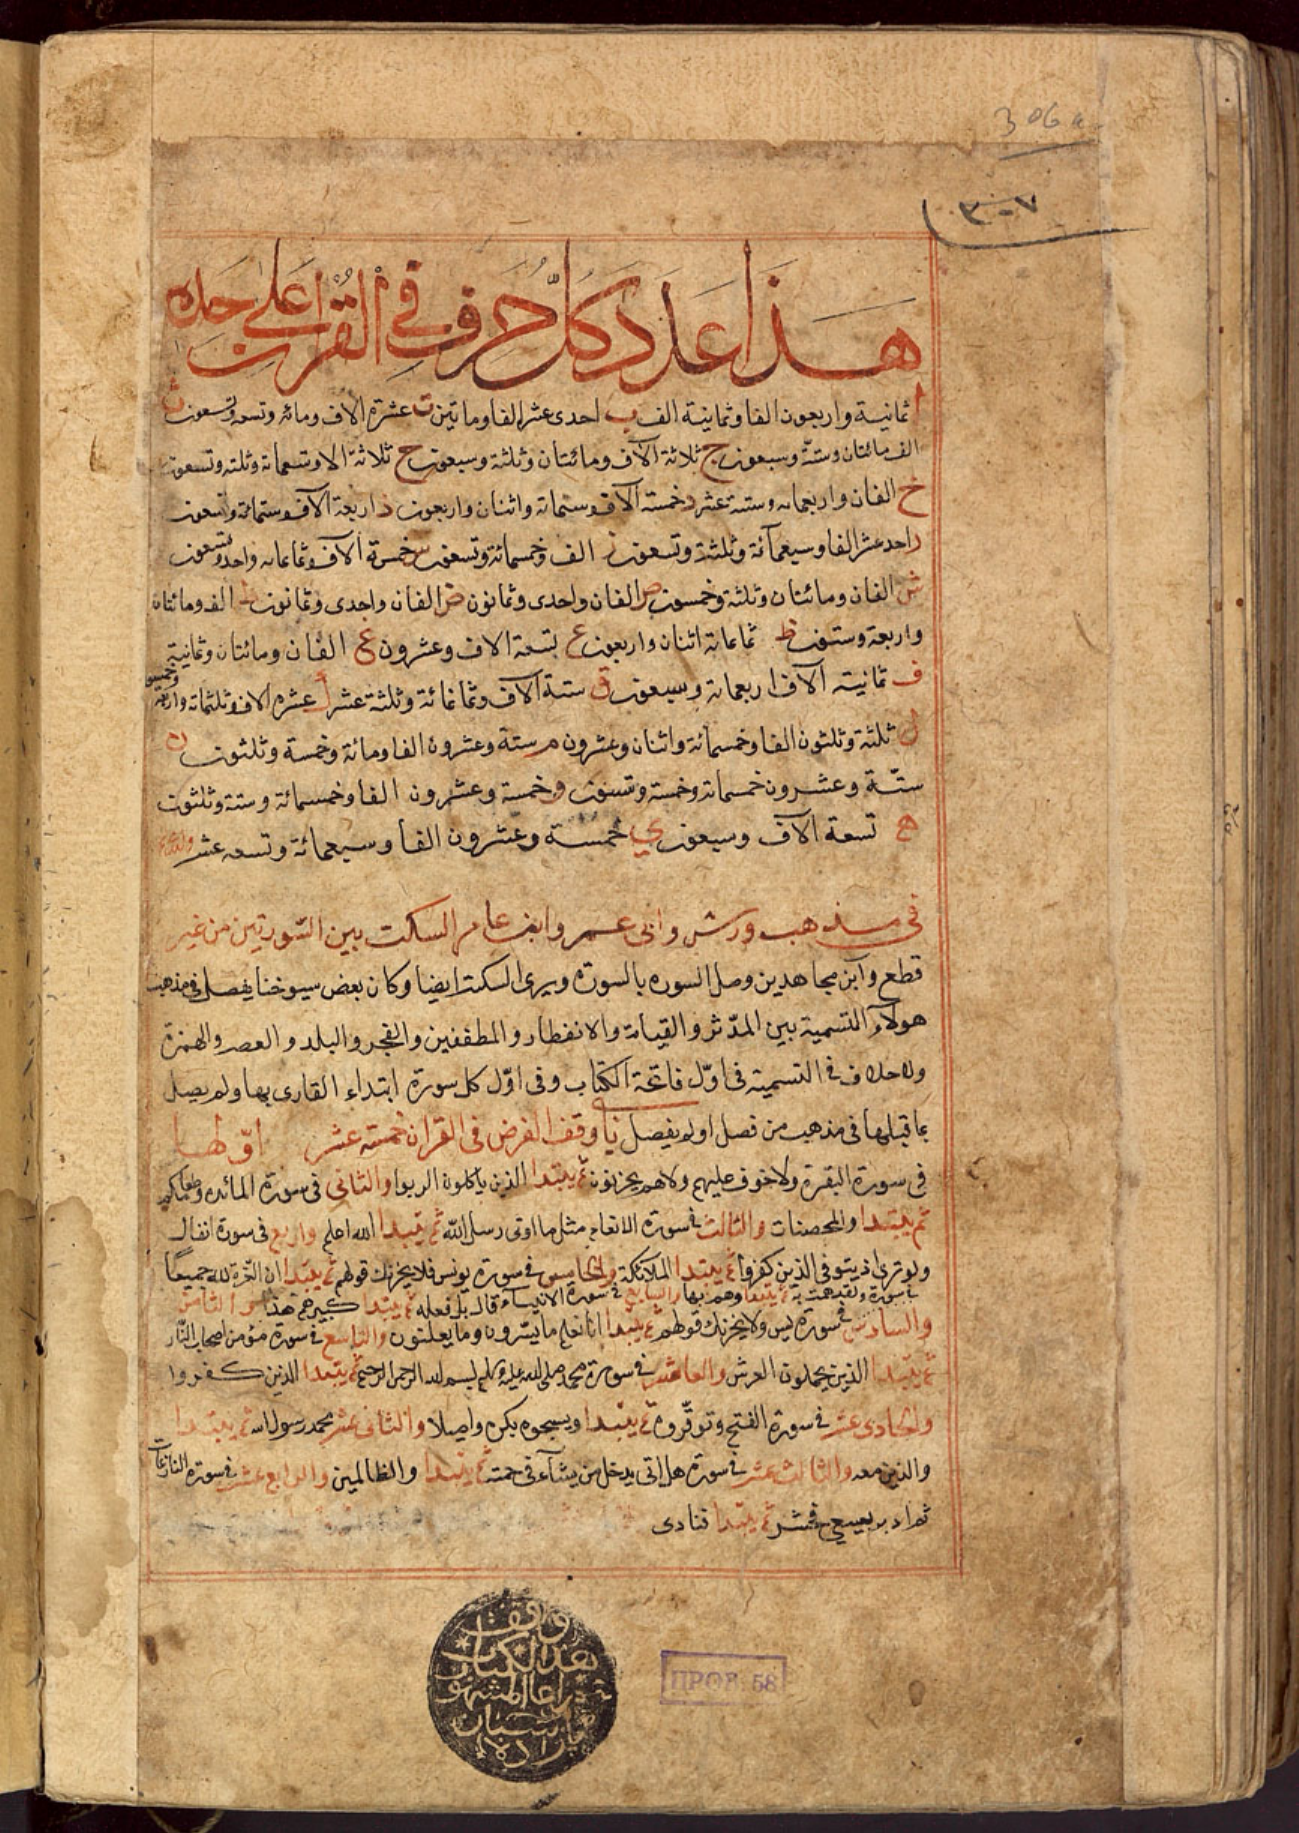 306a
٣٠٧
هذا عدد كل حرف في القران على حده
ا ثمانية واربعون الفا وثمانية الف ب احدى عشر الفا وماتين ت عشرة الاف ومائه وتسعه وتسعون ث
الف مائتان وستة وسبعون ج ثلاثة الآف ومائتان وثلثة وسبعون ح ثلاثة الاف وتسعماة وثلثه وتسعون
خ الفان واربعمايه وستة عشر د خمسة الآف وستماة واثنان واربعون ذ اربعة الآف وستمائة وتسعون
ر احد عشر الفا وسبعمآئة وثلثة وتسعون ز الف وخمسمائة وتسعون س خمسة الآف وثمانمايه واحد وتسعون
ش الفان ومائتان وثلثة وخمسون ص الفان واحدى وثمانون ض الفان واحدى وثمانون ط الف ومائتان
واربعة وستون ظ ثمانماة اثنان واربعون ع تسعة الاف وعشرون غ الفان ومائتان وثمانية
وخمسون
ف ثمانية الآف اربعماة وسبعون ق ستة الآف وثمانمائة وثلثة عشر ك عشره الاف وثلثماة واربعة
ل ثلثة وثلثون الفا وخمسمائة واثنان وعشرون م ستة وعشرون الفا ومائة وخمسة وثلثون ن
ستّة وعشرون خمسماة وخمسة وستون و خمسة وعشرون الفا وخمسمائة وستة وثلثون
ه تسعة الآف وسبعون ي خمسة وعشرون الفا وسبعمائة وتسعه عشر
في مذهب ورش وابى عمرو وابن عامر السكت بين السّورتين من غير
قطع وابن مجاهد بين وصل السوره بالسورة ويرى السكت ايضا وكان بعض سيوخنا يفصل في مذهب
هولآء التسمية بين المدّثر والقيامة والانفطار والمطففين والفجر والبلد والعصر والهمزة
ولا خلاف في التسميه في اوّل فاتحة الكتاب وفي اوّل كل سورة ابتداء القارى بها ولم يصل
بما قبلها في مذهب من فصل او لم يفصل وقف الفرض في القران خمسة عشر اوّلها
في سورة البقرة ولا خوف عليهم ولا هم يحزنون ثم يبتدا الذين ياكلون الربوا والثانى في سورة المائده وطعامكم
ثم يبتدا والمحصنات والثالث في سورة الانعام مثل ما اوتى رسل الله ثم يبتدا الله اعلم واربع في سورة انفال
ولو ترى اذ يتوفى الذين كفروا ثم يبتدا الملائكة والخامس في سورة يونس فلا يحزنك قولهم ثم يبتدا ان العزة لله جميعًا
في سورة ولقد همت به ثم يبتدا وهم بها والسابع في سورة الانبياء قال بل فعله ثم يبتدا كبيرهم هذا والثامن
والسادس في سورة يس ولا يحزنك قولهم ثم يبتدا انا نعلم ما يسّرون وما يعلنون والتاسع في سورة مؤمن اصحاب النّار
ثم يبتدا الذين يحملون العرش والعاشر في سورة محمد صلى الله عليه وسلم بسم الله الرحمن الرحيم ثم يبتدا الذين كفروا
والحادى عشر في سورة الفتح وتوقّروه ثم يبتدا ويسبحوه بكرة واصيلا والثانى عشر محمد رسول الله ثم يبتدا
والذين معه والثالث عشر في سورة هل اتى يدخل من يشآء في رحمته ثم يبتدا والظالمين والرابع عشر في سورة النازعات
ثم ادبر يسعى فحشر ثم يبتدا فنادى
وقف
هذا الكتاب
المشهور
زاده
ПРОВ. 58